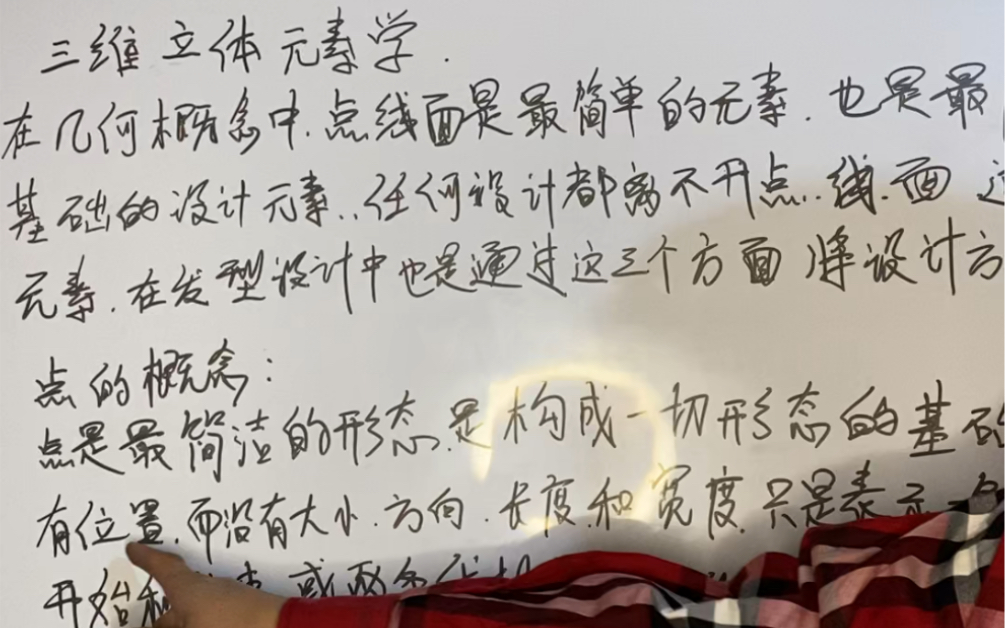 三维立体元素学.
在几何概念中.点线面是最简单的元素.也是最
基础的设计元素..任何设计都离不开点.线.面
元素.在发型设计中也是通过这三个方面将设计方
点的概念:
点是最简洁的形态.是构成一切形态的基础
有位置.而没有大小.方向.长度.和宽度.只是表示一
开始和